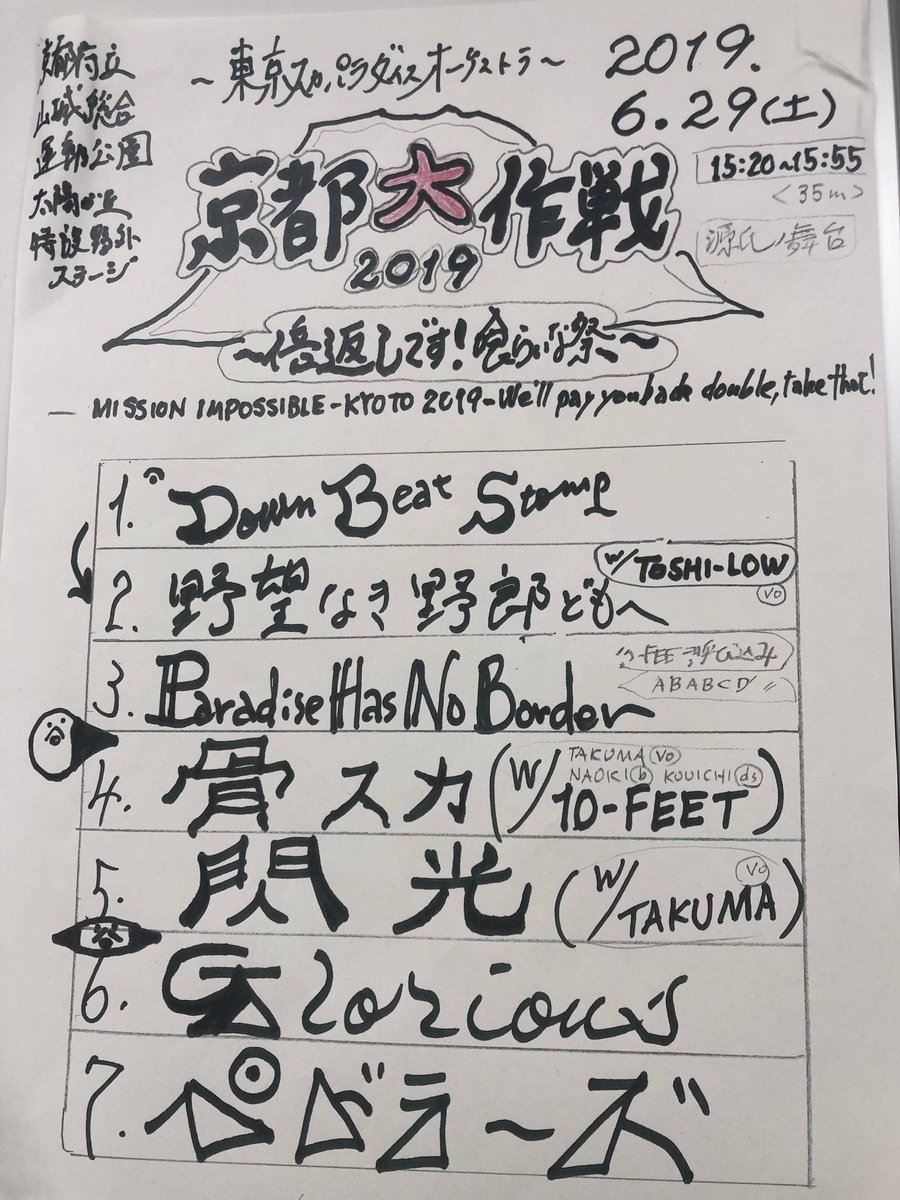 京都府立
山城総合
運動公園
太陽が丘
特設野外
ステージ
～東京スカパラダイスオーケストラ～
2019.
6.29(土)
15:20~15:55
<35m>
源氏ノ舞台
京都大作戦
2019
～倍返しです!喰らいな祭～
— MISSION IMPOSSIBLE-KYOTO 2019-We'll pay you back double, take that!
1. Down Beat Stomp
2. 野望なき野郎どもへ
w/TOSHI-LOW
vo
3. Paradise Has No Border
10-FEET 呼び込み
ABABCD〃
4. 骨スカ (w/10-FEET)
TAKUMA vo
NAOKI b KOUICHI ds
5. 閃光 (w/TAKUMA)
vo
谷
6. Glorious
7. ペドラーズ